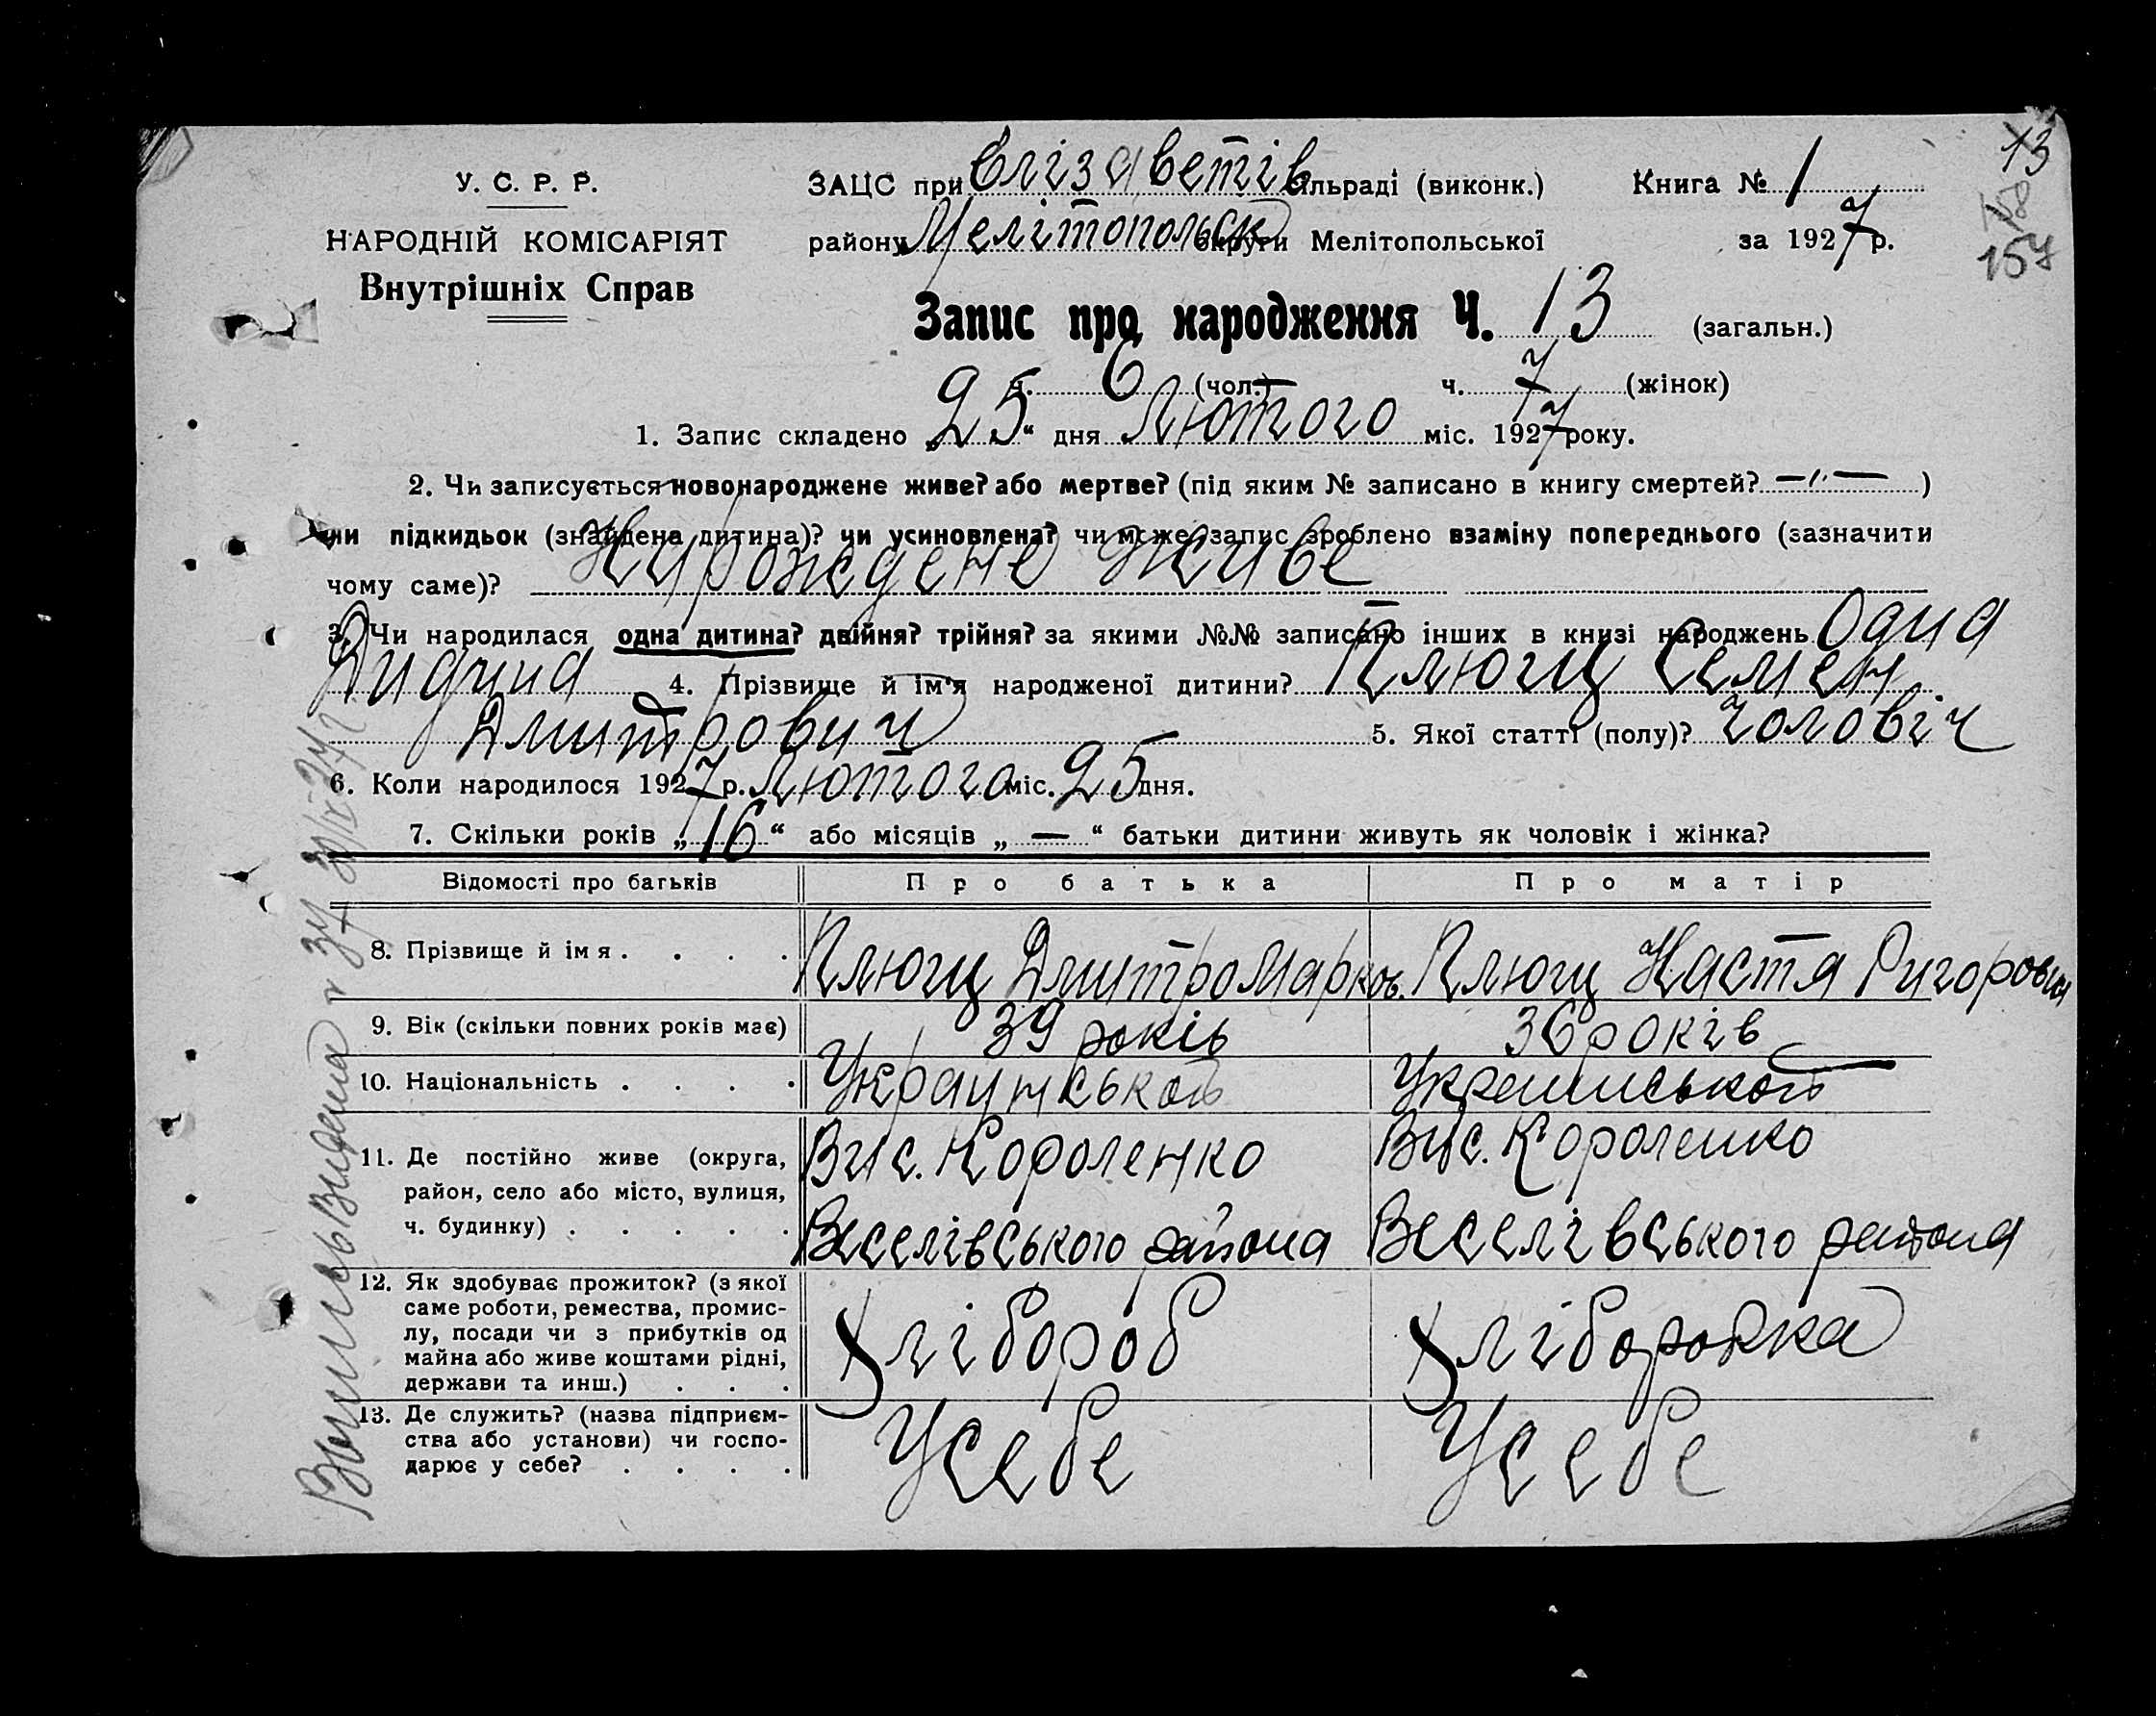 13
У. С. Р. Р.
ЗАЦС при Єлізаветів сільраді (виконк.) Книга № 1
157
НАРОДНІЙ КОМІСАРІЯТ
району Мелітопольск округи Мелітопольської за 1927 р.
Внутрішніх Справ
Запис про народження Ч. 13 (загальн.)
ч. 6 (чол.) ч. 7 (жінок)
1. Запис складено „25“ дня Лютого міс. 1927 року.
2. Чи записується новонароджене живе? або мертве? (під яким № записано в книгу смертей? —"— )
чи підкидьок (знайдена дитина)? чи усиновлена? чи може запис зроблено взаміну попереднього (зазначити
чому саме)? Нарождене живе
3. Чи народилася одна дитина? двійня? трійня? за якими №№ записано інших в книзі народжень Одна
Дидина 4. Прізвище й ім'я народженої дитини? Плющ Семен
Дмитрович 5. Якої статті (полу)? чоловіч
6. Коли народилося 1927 р. Лютого міс. 25 дня.
7. Скільки років „16“ або місяців „—“ батьки дитини живуть як чоловік і жінка?
Відомості про батьків Про батька Про матір
8. Прізвище й імя . . . . Плющ Дмитро Марков. Плющ Настя Ригоровна
9. Вік (скільки повних років має) 39 років 36 років
10. Національність . . . . Украунськой Украинськой
11. Де постійно живе (округа, Вис. Короленко Вис. Короленко
район, село або місто, вулиця,
ч. будинку) . . . . . Веселівського района Веселівського района
12. Як здобуває прожиток? (з якої
саме роботи, ремества, промис-
лу, посади чи з прибутків од Хлібороб Хлібороbка
майна або живе коштами рідні,
держави та инш.) . . .
13. Де служить? (назва підприєм-
ства або установи) чи госпо- Усебе Усебе
дарює у себе? . . . .